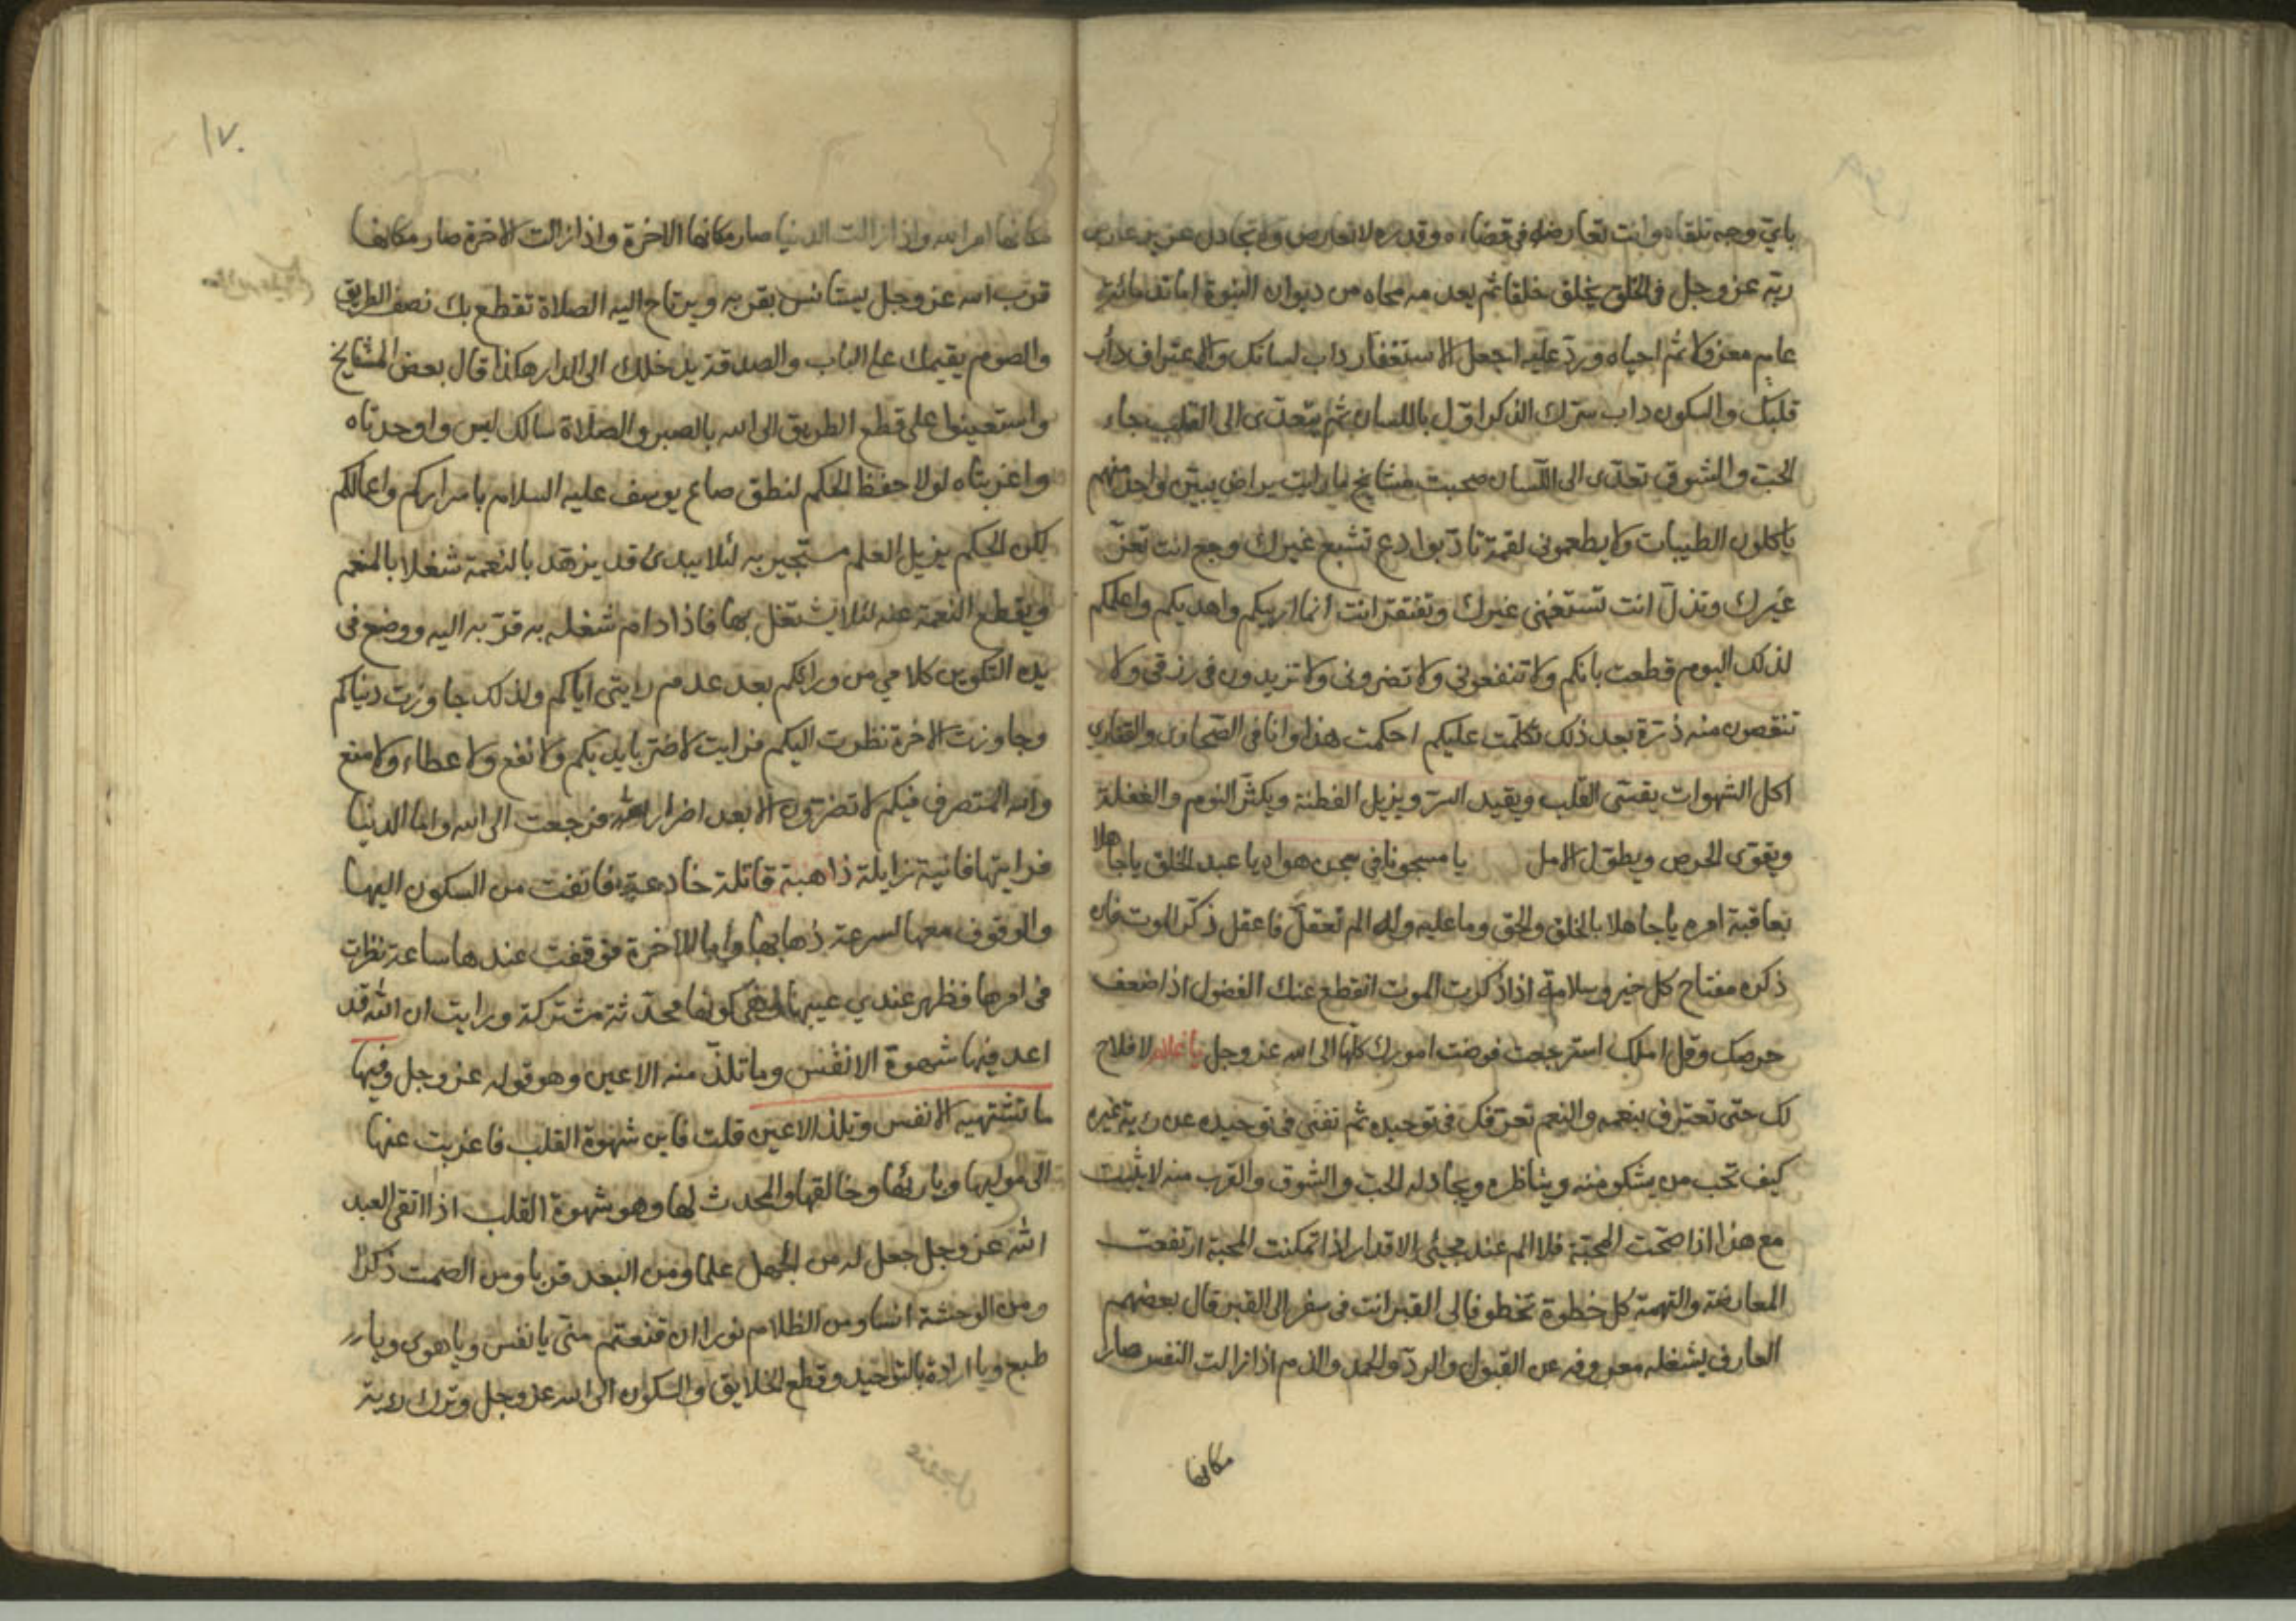 باي وجه تلقاه وانت تعارضه في قضاءه وقدره لا تعارض ولا تجادل عزير عارض
ربه عز وجل في الخلق يخلق خلقا ثم يعدمه محاه من ديوان النبوة اماته مائة
عام معزولا ثم احياه ورد عليه اجعل الاستغفار داب لسانك والاعتراف دأب
قلبك والسكون داب سرك الذكر اول باللسان ثم يتعدى الى القلب جاء
الحب والشوق تعدى الى اللسان صحبت مشايخ ما رايت بياض واحد منهم
ياكلون الطيبات ولا يطعموني لقمة تادبوا دع تشبع غيرك وجع انت تعز
غيرك وتذل انت تستغني غيرك وتفتقر انت انما اربيكم واهديكم واعلمكم
لذلك اليوم قطعت بانكم ولا تنفعوني ولا تضروني ولا تزيدون في رزقي ولا
تنقصون منه ذرة بعد ذلك تكلمت عليكم احكمت هذا وانا في الصحاري والقفاري
اكل الشهوات يقسي القلب ويقيد السر ويزيل الفطنة ويكثر النوم والغفلة
ويقوى الحرص ويطول الامل يا مسجونا في سجن هواه يا عبد الخلق يا جاهلا
بعاقبة امره يا جاهلا بالخلق والحق وما عليه وله الم تعقل فاعقل ذكر الموت فان
ذكره مفتاح كل خير وسلامة اذا ذكرت الموت انقطع عنك الفضول اذا ضعف
حرصك وقل املك استرجعت فوضت امورك كلها الى الله عز وجل يا غلام لا فلاح
لك حتى تعترف بنعمه والنعم تعرفك في توحيده ثم تفنى في توحيده عن رية غيره
كيف تحب من يشكو منه ويناظره ويجادله الحب والشوق والقرب منه لا يثبت
مع هذا اذا صحت المحبة فلا الم عند مجيئ الاقدار اذا تمكنت المحبة ارتفعت
المعارضة والتهمة كل خطوة تخطو فالى القبر انت في سفر الى القبر قال بعضهم
العارف يشغله معروفه عن القبول والرد والحمد والذم اذا زالت النفس صار
مكانها
١٧٠
مكانها امر الله واذا زالت الدنيا صار مكانها الاخرة واذا زالت الاخرة صار مكانها
قرب الله عز وجل يستانس بقربه ويرتاح اليه الصلاة تقطع بك نصف الطريق
والصوم يقيمك على الباب والصدقة يدخلك الى الدار هكذا قال بعض المشايخ
واستعينوا على قطع الطريق الى الله بالصبر والصلاة سالك ليس واوحدتاه
واغربتاه لولا حفظ الحكم لنطق صاع يوسف عليه السلام باسراركم واعمالكم
لكن الحكم يزيل العلم مستجير به لئلا يبدئ قد يزهد بالنعمة شغلا بالمنعم
ويقطع النعمة عنه لئلا يشتغل بها فاذا دام شغله به قربه اليه ووضع في
يده التكوين كلامي من ورائكم بعد عدم رايتي اياكم ولذلك جاوزت دنياكم
وجاوزت الاخرة نظرت اليكم فرايت لا ضر بايديكم ولا نفع ولا عطاء ولا منع
والله المتصرف فيكم لا تضرون الا بعد اضرار الله فرجعت الى الله واما الدنيا
فرايتها فانية زايلة ذاهبة قاتلة خادعة فانفت من السكون اليها
والوقوف معها لسرعة ذهابها واما الاخرة فوقفت عندها ساعة نظرت
في امرها فظهر عندي عيبها كونها محدثة مشتركة ورايت ان الله قد
اعد فيها شهوة الانفس وما تلذ منه الاعين وهو قوله عز وجل وفيها
ما تشتهيه الانفس وتلذ الاعين قلت فاين شهوة القلب فاعربت عنها
الى موليها وبارئها وخالقها والمحدث لها وهو شهوة القلب اذا اتقى العبد
الله عز وجل جعل له من الجهل علما ومن البعد قربا ومن الصمت ذكرا
ومن الوحشة انسا ومن الظلام نورا ان قنعتم مني يا نفس ويا هوى ويا
طبع ويا ارادة بالتوحيد وقطع الخلايق والسكون الى الله عز وجل وترك رية